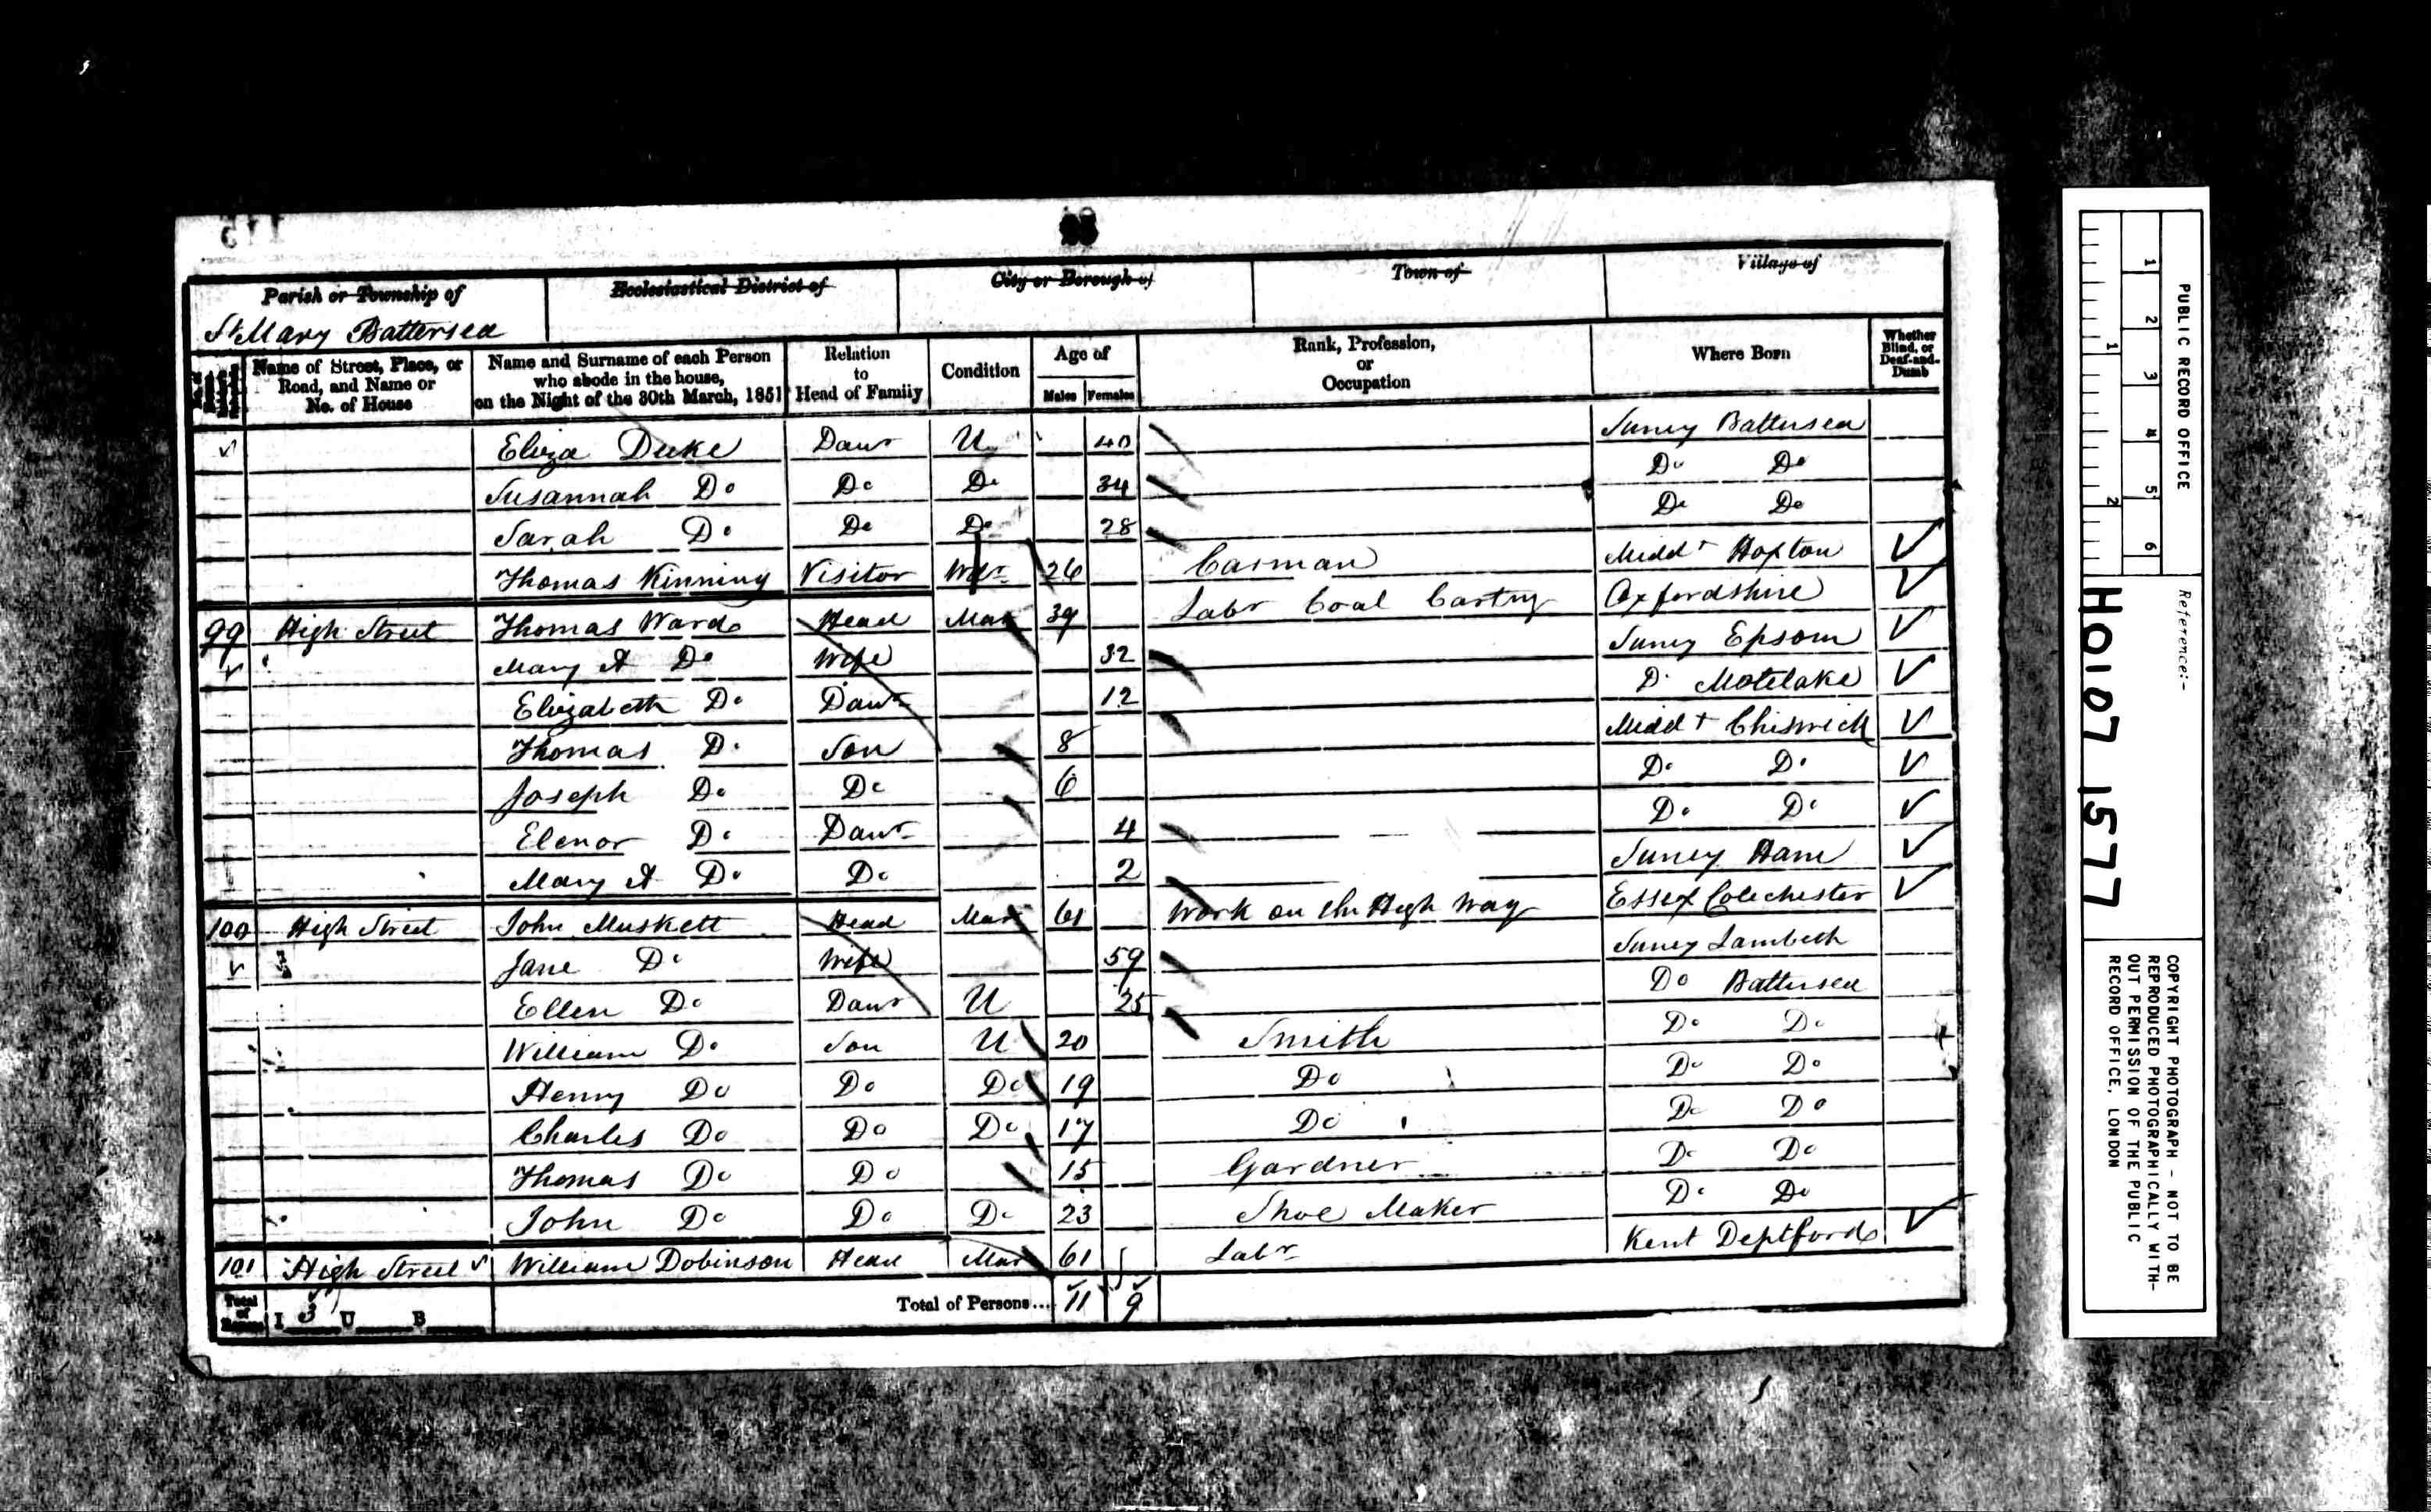 Parish or Township of
Ecclesiastical District of
City or Borough of
Town of
Village of
St Mary Battersea
Name of Street, Place, or Road, and Name or No. of House
Name and Surname of each Person who abode in the house, on the Night of the 30th March, 1851
Relation to Head of Family
Condition
Age of
Males Females
Rank, Profession, or Occupation
Where Born
Whether Blind, or Deaf-and-Dumb
Eliza Duke Daur U 40 Surrey Battersea
Susannah Do Do Do 34 Do Do
Sarah Do Do Do 28 Do Do
Thomas Kinning Visitor Wdr 26 Carman Middx Hoxton
99 High Street Thomas Ward Head Mar 39 Labr Coal Carting Oxfordshire
Mary A Do Wife 32 Surrey Epsom
Elizabeth Do Daur 12 Do Motelake
Thomas Do Son 8 Middx Chiswick
Joseph Do Do 6 Do Do
Elenor Do Daur 4 Do Do
Mary A Do Do 2 Surrey Ham
100 High Street John Muskett Head Mar 61 Work on the High Way Essex Colechester
Jane Do Wife 59 Surrey Lambeth
Ellen Do Daur U 25 Do Battersea
William Do Son U 20 Smith Do Do
Henry Do Do Do 19 Do Do Do
Charles Do Do Do 17 Do Do Do
Thomas Do Do 15 Gardner Do Do
John Do Do Do 23 Shoe Maker Do Do
101 High Street William Dobinson Head Mar 61 Labr Kent Deptford
Total of Houses I 3 U B Total of Persons... 11 9
PUBLIC RECORD OFFICE
1 2 3 4 5 6
1 2
Reference:-
HO107 1577
COPYRIGHT PHOTOGRAPH - NOT TO BE
REPRODUCED PHOTOGRAPHICALLY WITH-
OUT PERMISSION OF THE PUBLIC
RECORD OFFICE, LONDON